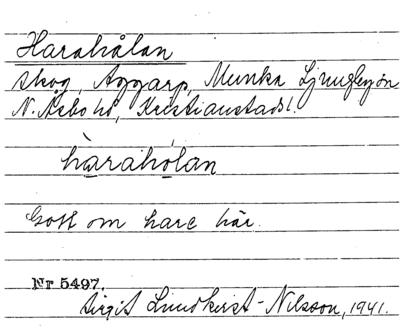 Harahålan
skog, Aggarp, Munka Ljungby sn
N. Åsbo hd, Kristianstads l.
hàrahólan
Gott om hare här.
Nr 5497.
Birgit Lindkvist-Nilsson, 1941.